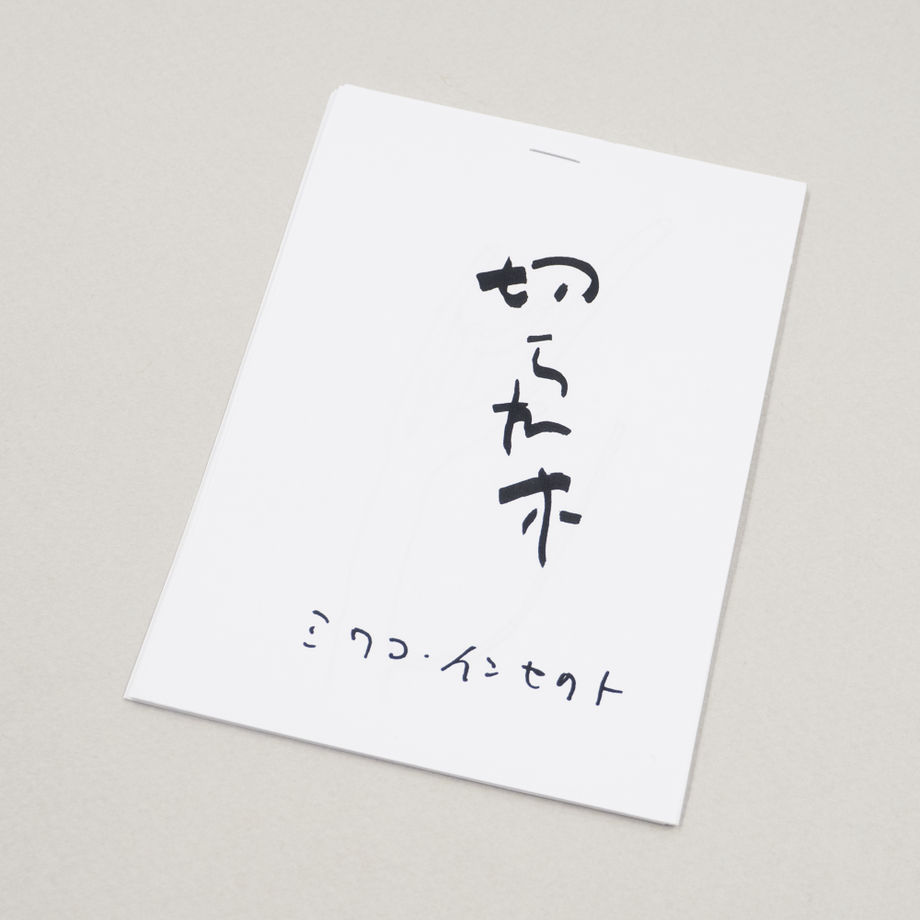 切られ木
ミワコ・インセクト